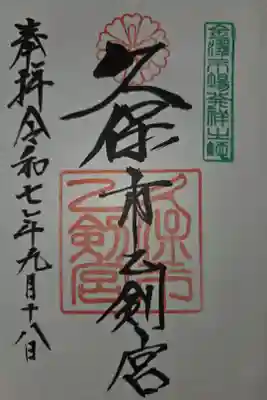 金澤市場発祥之地
久保市乙剣宮
久保市乙剣宮
奉拝 令和七年九月十八日